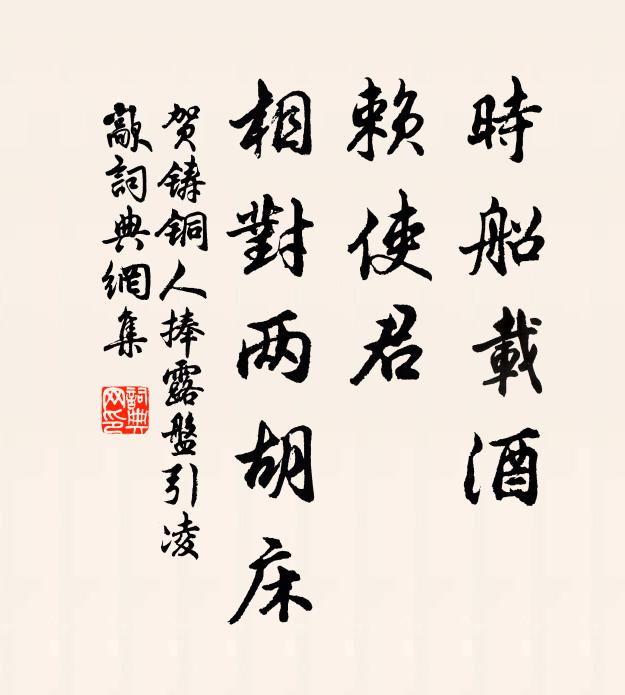 時船載酒
賴使君
相對两胡床
贺鑄铜人捧露盤引凌
歊詞典網集
詞典
网印